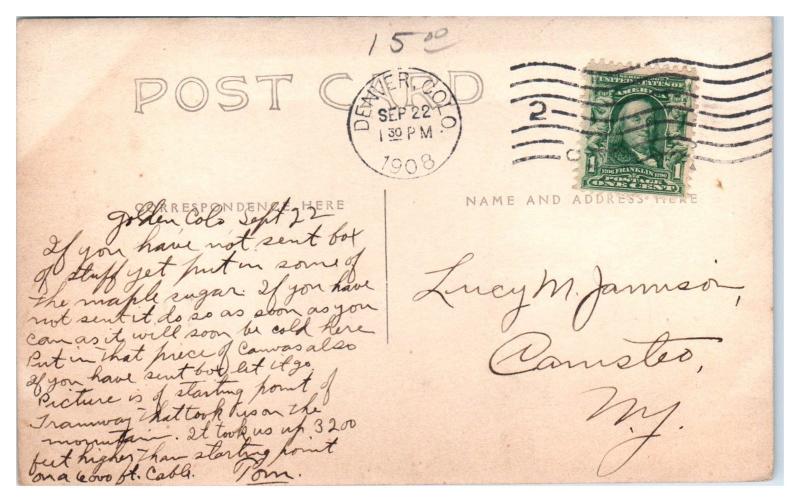 15.00
POST CARD
DENVER, COLO.
SEP 22
1 30 PM
1908
2
SERIES 1902
UNITED STATES OF
AMERICA
1706 FRANKLIN 1790
1 POSTAGE 1
ONE CENT
CORRESPONDENCE HERE
NAME AND ADDRESS HERE
Golden Colo Sept 22
If you have not sent box
of stuff yet put in some of
the maple sugar. If you have
not sent it do so as soon as you
can as it will soon be cold here
Put in that piece of canvas also
If you have sent box let it go
Picture is of starting point of
Tramway that took us on the
mountain. It took us up 3200
feet higher than starting point
on a 6000 ft. Cable. Tom.
Lucy M. Jamison,
Canisteo,
N.Y.